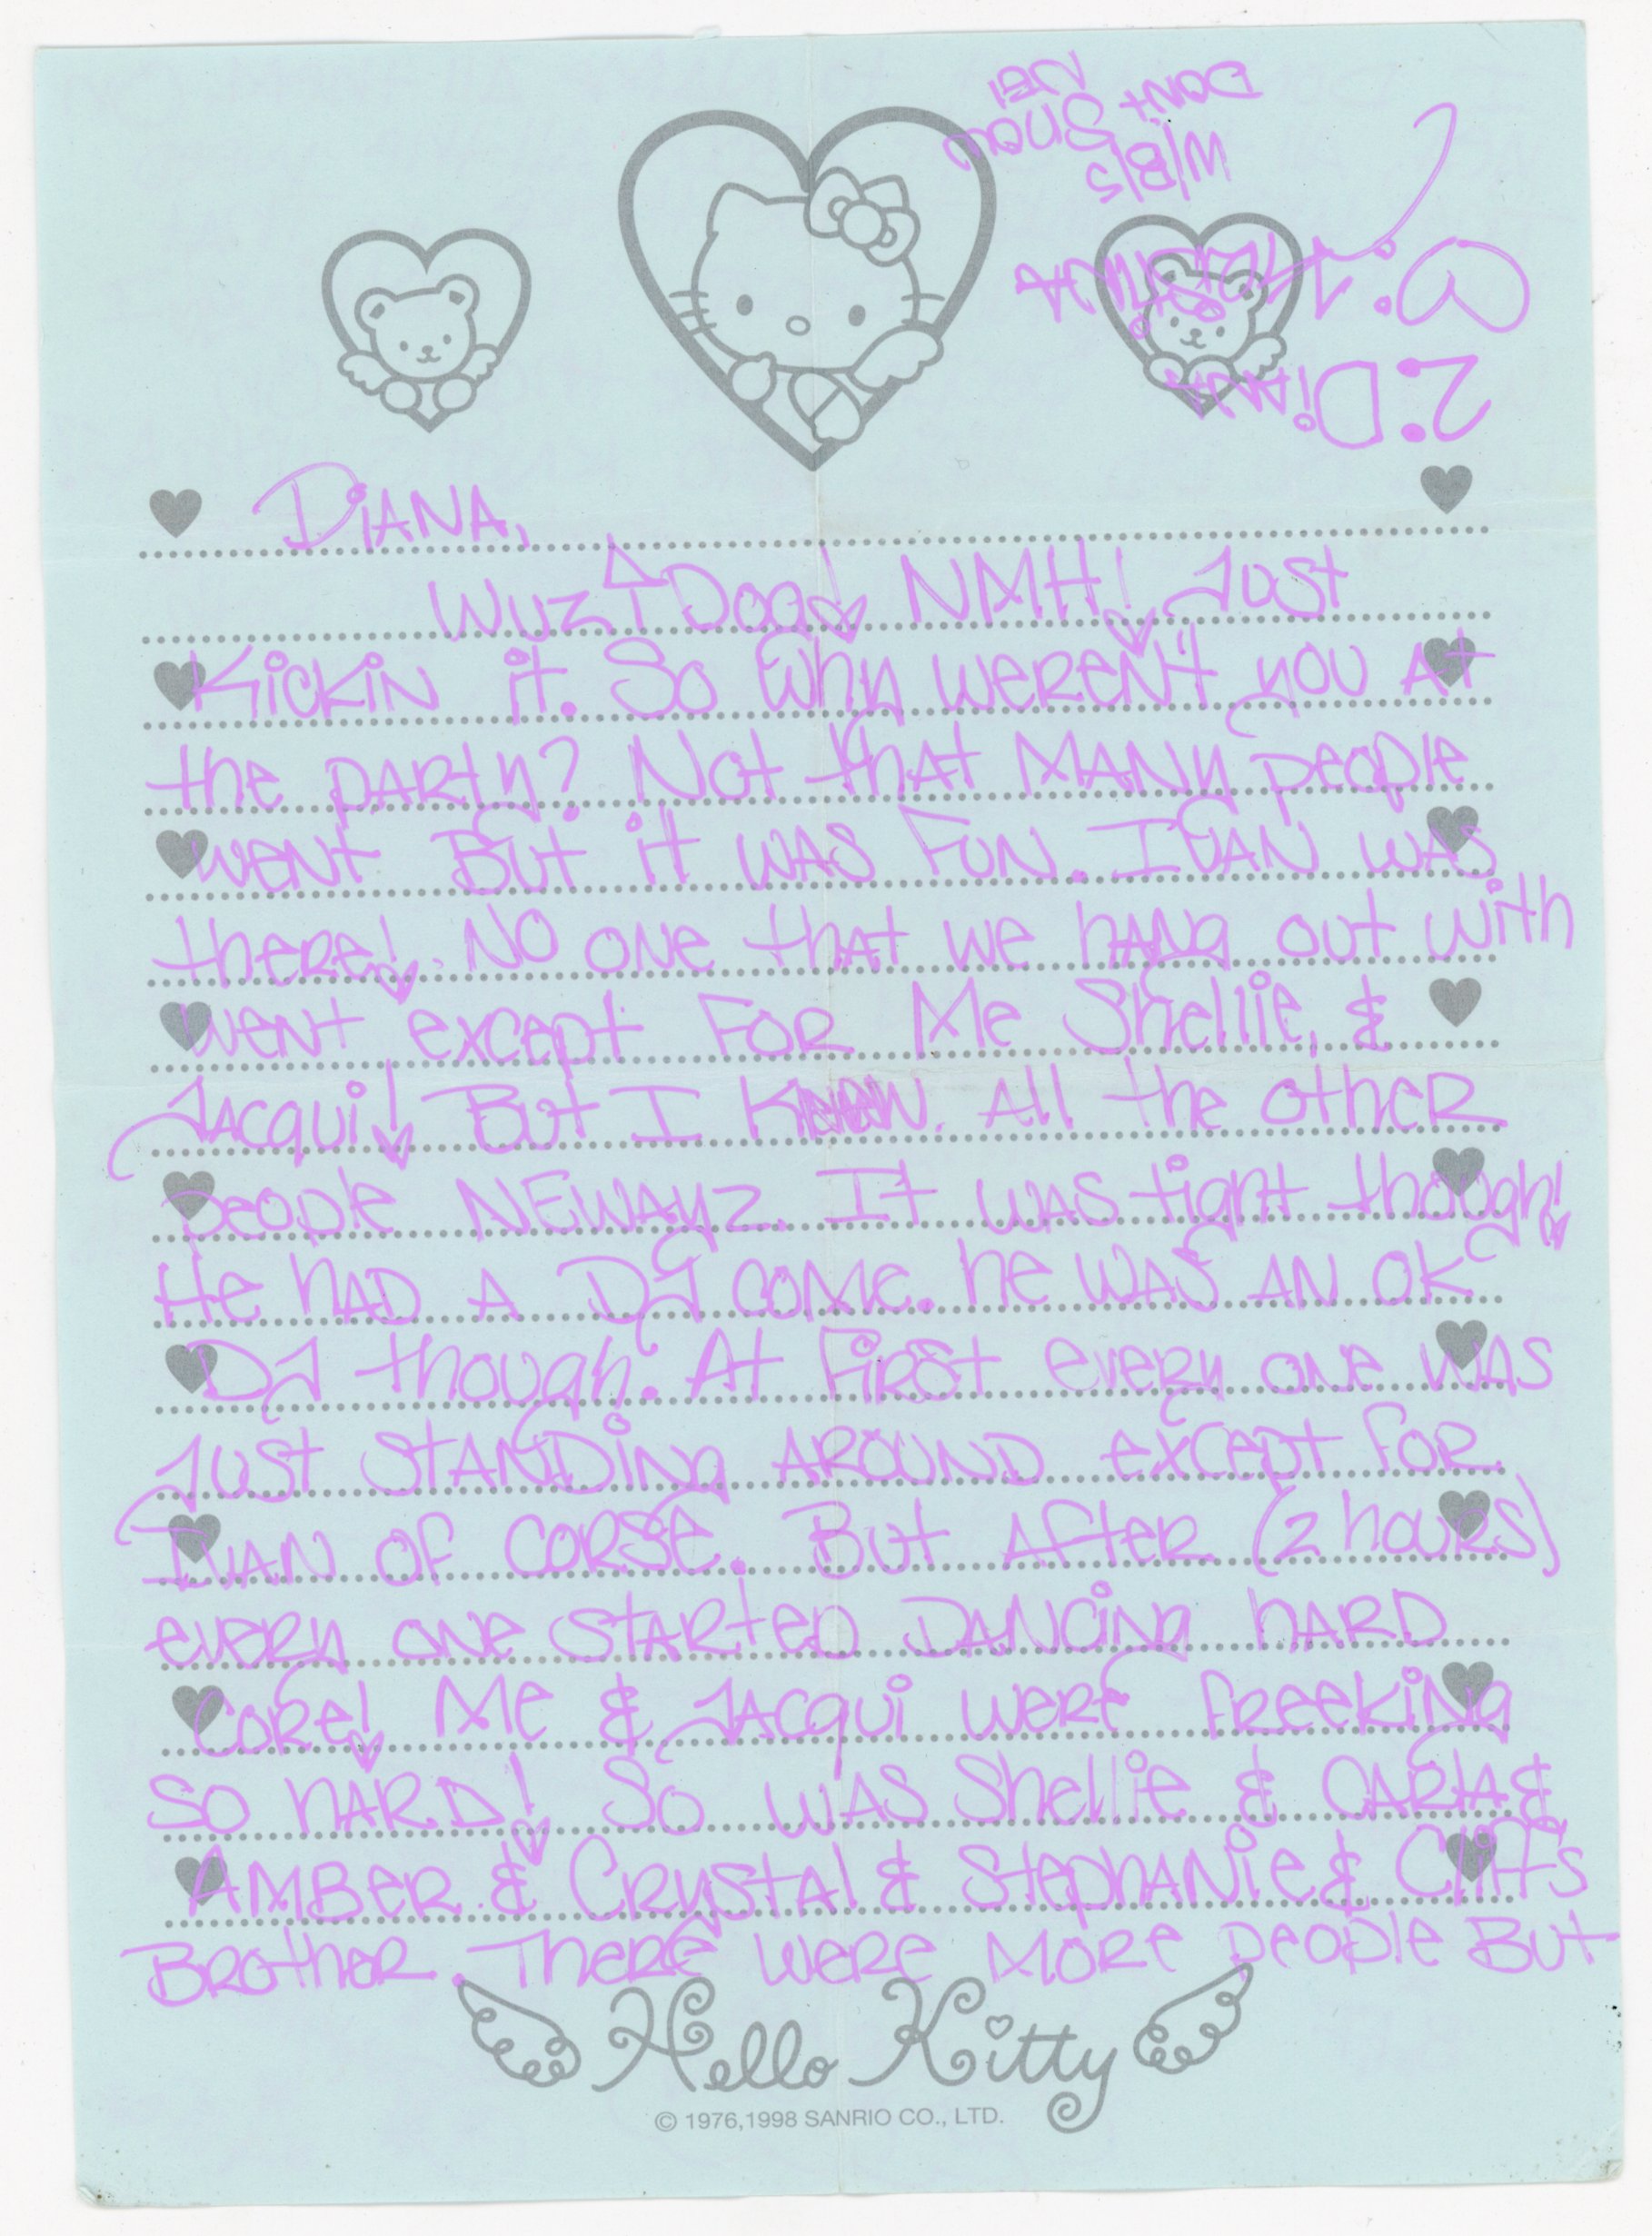 2: DiANA
W/B/S
DONT Show NE1
DiANA,
WUZ ↑ Dogg! NMH! Just
KickiN it. So Why WEREN't you At
the pARty? Not thAt MANy people
WENt But it WAS FUN. IVAN WAS
thERE! NO ONE thAt we hANg out with
WENt except FOR Me Shellie, &
JAcqui! But I KNEW All the otheR
people NEWAyz. It WAS tight though!
He hAD A DJ COME. he WAS AN OK
DJ though. At FiRSt eveRy ONE WAS
Just StANDiNg AROUND except foR
IVAN of CORSE. But AfteR (2 houRS)
eveRy ONE StARteD DANciNg hARD
CORe! Me & JAcqui weRe fReekiNg
SO hARD! So WAS Shellie & CARlA &
AMBeR & CRystAl & StephANie & Cliff's
BRotheR. TheRE WERE MORE people But
Hello Kitty
© 1976,1998 SANRIO CO., LTD.